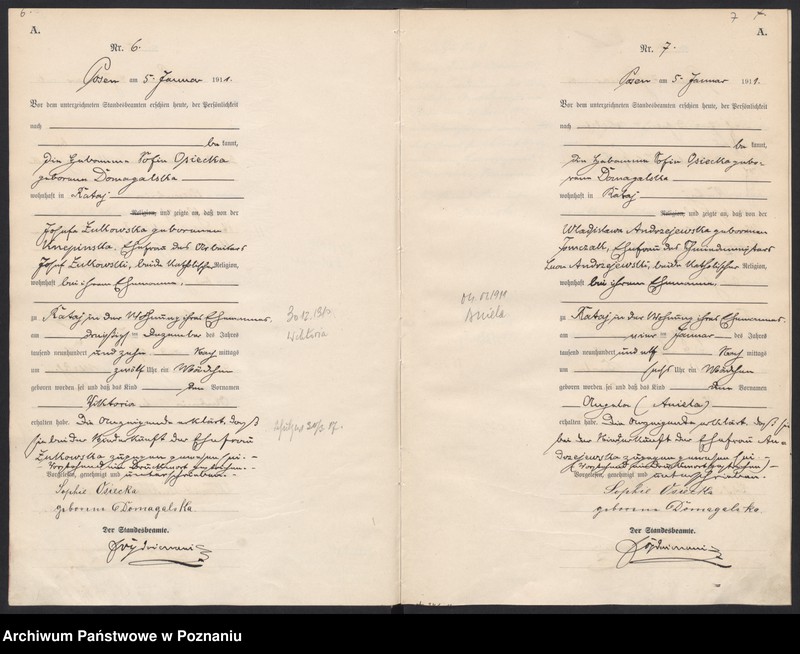 6.
A.
Nr. 6.
Posen am 5. Januar 1911.
Vor dem unterzeichneten Standesbeamten erschien heute, der Persönlichkeit
nach
be kannt,
die Hebamme Sofie Osiecka
geborene Domagalska
wohnhaft in Rataj
Religion, und zeigte an, daß von der
Josefa Zulkowska geborenen
Ehefrau des Arbeiters
Josef Zulkowski, beide katholischer Religion,
wohnhaft bei ihrem Ehemanne,
zu Rataj in der Wohnung ihres Ehemannes
am dreißigsten Dezember des Jahres
tausend neunhundert und zehn Nach mittags
um zwölf Uhr ein Mädchen
geboren worden sei und daß das Kind den Vornamen
Viktoria
erhalten habe. Die Anzeigende erklärt, daß
sie bei der Niederkunft der Ehefrau
Zulkowska zugegen gewesen sei.
Vorstehend ein Druckwort gestrichen.
Vorgelesen, genehmigt und unterschrieben.
Sophie Osiecka
geborene Domagalska
Der Standesbeamte.
30.12.1910
Wiktoria
7
A.
Nr. 7.
Posen am 5. Januar 1911.
Vor dem unterzeichneten Standesbeamten erschien heute, der Persönlichkeit
nach
be kannt,
die Hebamme Sofie Osiecka gebo-
rene Domagalska
wohnhaft in Rataj
Religion, und zeigte an, daß von der
Wladislawa Andrzejewska geborenen
Tomczak, Ehefrau des
Andrzejewski, beide katholischer Religion,
wohnhaft bei ihrem Ehemanne,
zu Rataj, in der Wohnung ihres Ehemannes
am vier ten Januar des Jahres
tausend neunhundert und elf Nach mittags
um sechs Uhr ein Mädchen
geboren worden sei und daß das Kind den Vornamen
Angela (Aniela)
erhalten habe. Die Anzeigende erklärt, daß sie
bei der Niederkunft der Ehefrau An-
drzejewska zugegen gewesen sei.
(Vorstehend ein Druckwort gestrichen)
Vorgelesen, genehmigt und unterschrieben.
Sophie Osiecka
geborene Domagalska
Der Standesbeamte.
04.01.1911
Aniela
Archiwum Państwowe w Poznaniu